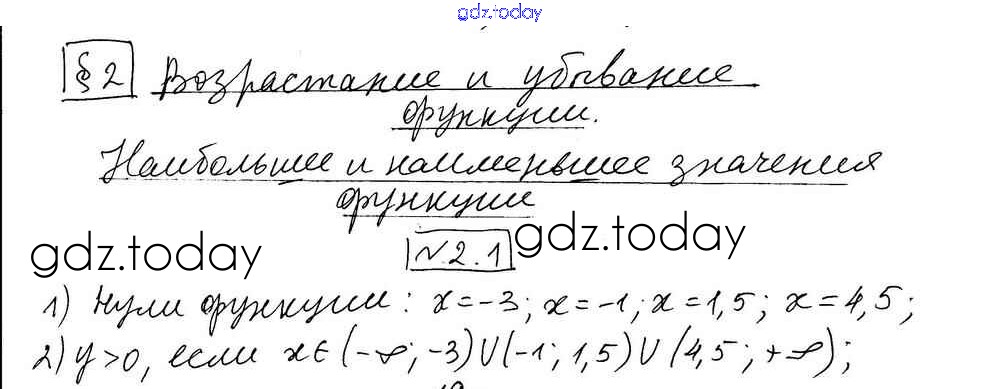 gdz.today
§ 2 Возрастание и убывание
функции.
Наибольшее и наименьшее значения
функции
gdz.today
№2.1
gdz.today
1) Нули функции: x=-3; x=-1; x=1,5; x=4,5;
2) y>0, если x∈(-∞;-3)∪(-1;1,5)∪(4,5;+∞);